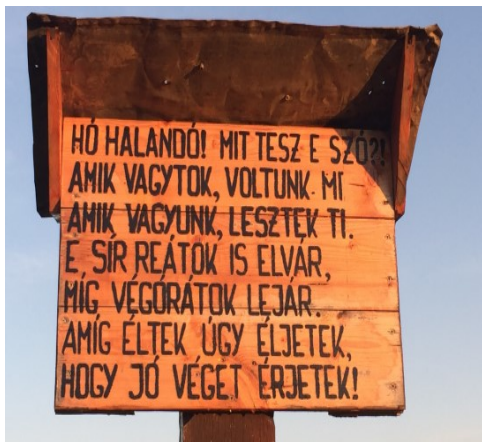 HÓ HALANDÓ! MIT TESZ E SZÓ?!
AMIK VAGYTOK, VOLTUNK MI
AMIK VAGYUNK, LESZTEK TI.
E, SÍR REÁTOK IS ELVÁR,
MIG VÉGÓRÁTOK LEJÁR.
AMÍG ÉLTEK ÚGY ÉLJETEK,
HOGY JÓ VÉGET ÉRJETEK!